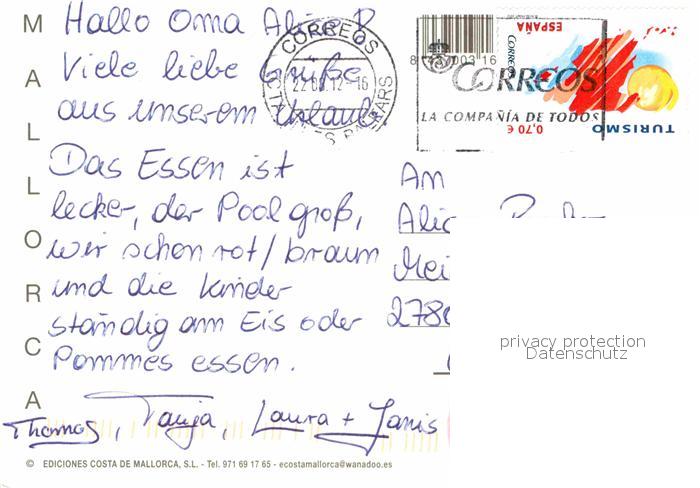 MALLORCA
Hallo Oma Alice R
Viele liebe Grüße
aus unserem Urlaub
Das Essen ist
lecker, der Pool groß,
wir schon rot/braun
und die Kinder
ständig am Eis oder
Pommes essen.
Thomas, Tanja, Laura + Janis
An
Alic
Mei
278
CORREOS
22 12-16
8 437003 16
CORREOS
LA COMPAÑÍA DE TODOS
ESPAÑA
CORREOS
0,70 €
TURISMO
privacy protection
Datenschutz
© EDICIONES COSTA DE MALLORCA, S.L. - Tel. 971 69 17 65 - ecostamallorca@wanadoo.es